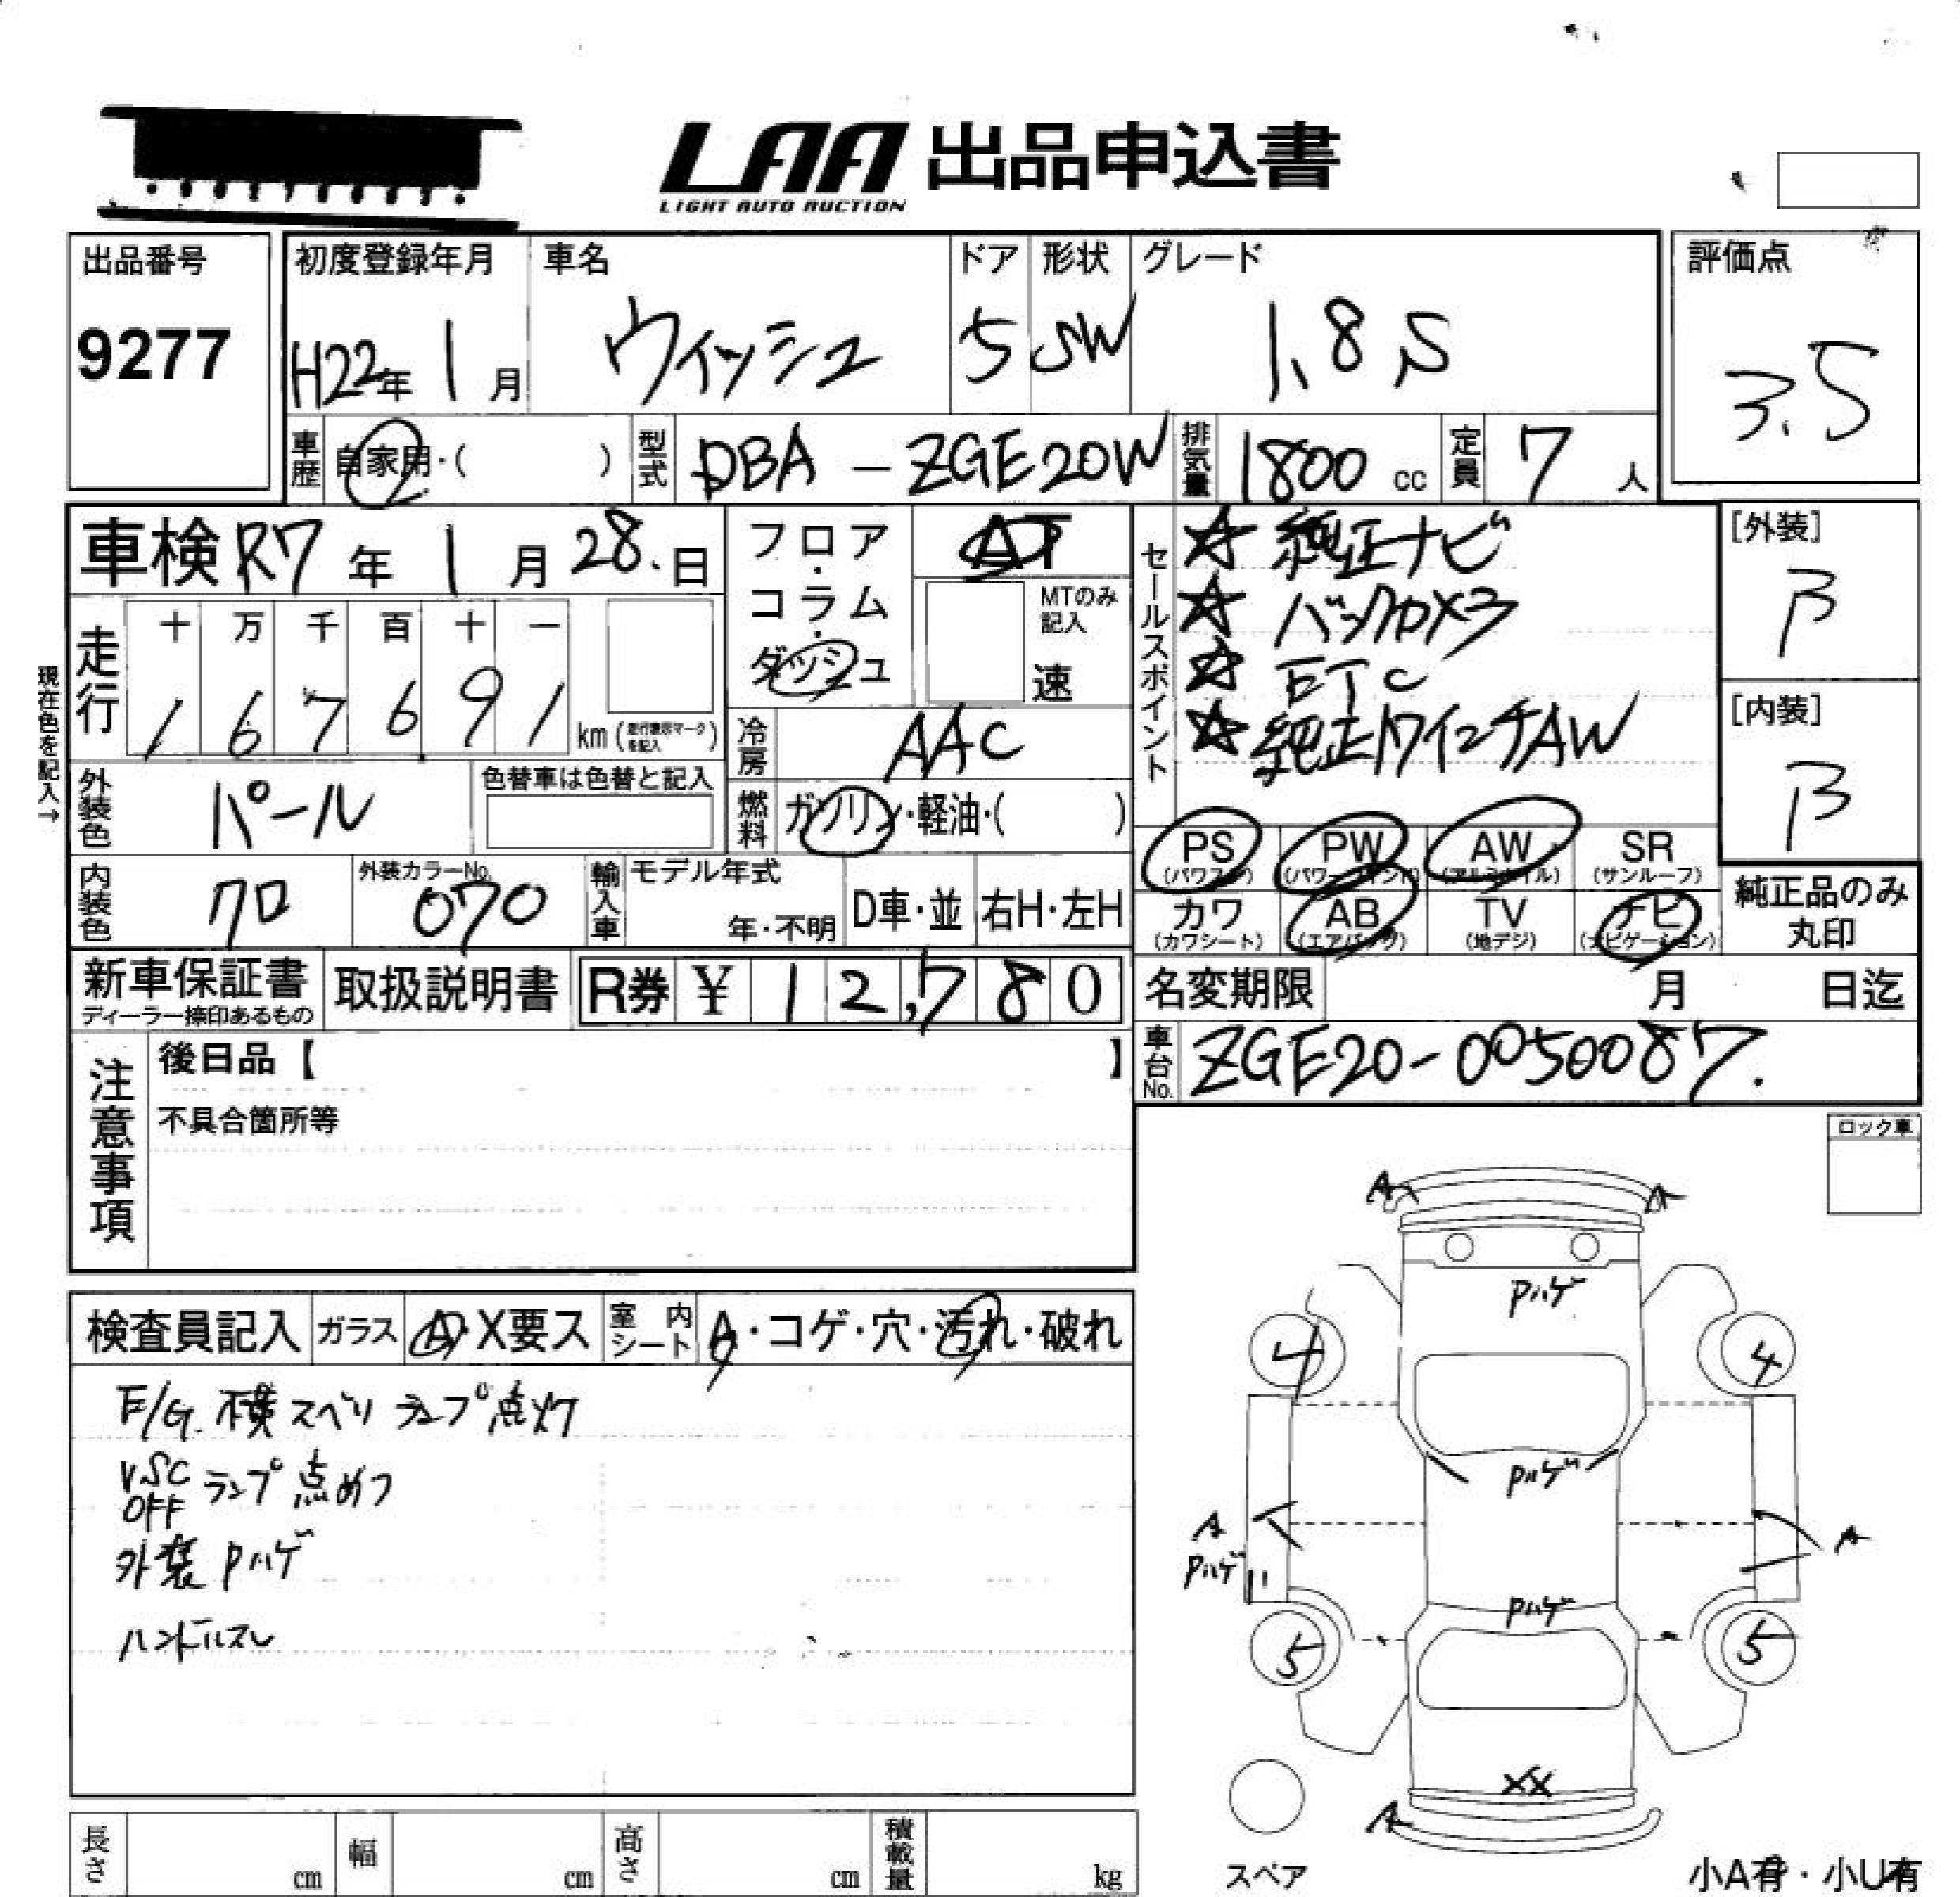 LAA 出品申込書
LIGHT AUTO AUCTION
出品番号
9277
初度登録年月
H22年 1月
車名
ウィッシュ
ドア
5
形状
SW
グレード
1.8S
評価点
3.5
車歴 自家用・( )
型式 DBA-ZGE20W
排気量 1800 cc
定員 7 人
車検 R7年 1月 28日
フロア・コラム・ダッシュ
AT
MTのみ記入
速
セールスポイント
☆ 純正ナビ
☆ バックカメラ
☆ ETC
☆ 純正17インチAW
[外装]
B
[内装]
B
現在色を記入→
走行
十 万 千 百 十 一
1 6 7 6 9 1
km (走行表示マークを記入)
冷房 AAC
外装色 パール
色替車は色替と記入
燃料 ガソリン・軽油・( )
PS (パワステ)
PW (パワーウインド)
AW (アルミホイル)
SR (サンルーフ)
内装色 クロ
外装カラーNo. 070
輸入車
モデル年式
年・不明
D車・並
右H・左H
カワ (カワシート)
AB (エアバッグ)
TV (地デジ)
ナビ (ナビゲーション)
純正品のみ丸印
新車保証書
ディーラー捺印あるもの
取扱説明書
R券 ¥ 12,780
名変期限 月 日迄
車台No. ZGE20-0050087.
注意事項
後日品【 】
不具合箇所等
ロック車
検査員記入
ガラス A・X要ス
室内シート A・コゲ・穴・汚れ・破れ
F/G. 横スベリ ランプ点灯
VSC OFF ランプ 点めつ
外装 Pハゲ
ハンドルスレ
A A
Pハゲ
4 4
Pハゲ
A A
Pハゲ
Pハゲ
5 5
XX
A
スペア
小A有・小U有
長さ cm
幅 cm
高さ cm
積載量 kg